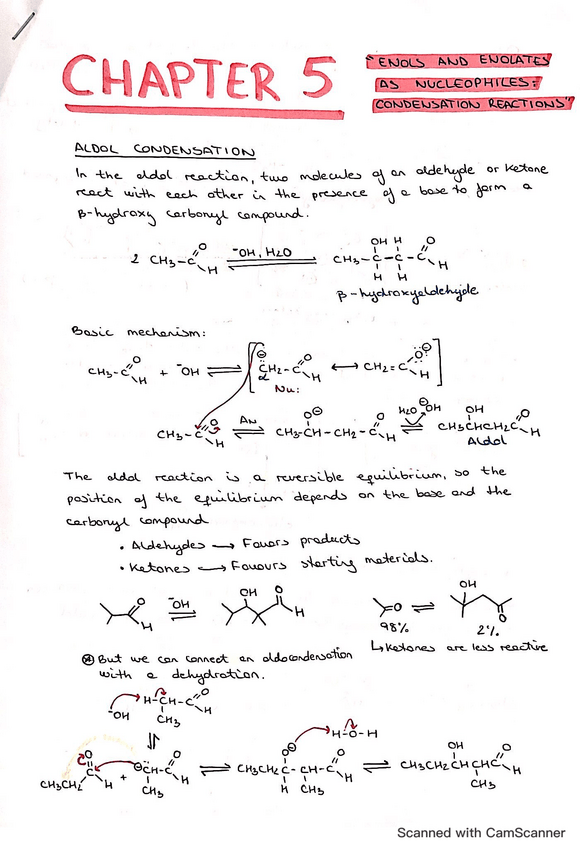 CHAPTER 5
"ENOLS AND ENOLATES
AS NUCLEOPHILES:
CONDENSATION REACTIONS"
ALDOL CONDENSATION
In the aldol reaction, two molecules of an aldehyde or ketone
react with each other in the presence of a base to form a
β-hydroxy carbonyl compound.
2 CH3-C O H ⁻OH, H2O OH H CH3-C-C-C O H H H
β-hydroxyaldehyde
Basic mechanism:
CH3-C O H + ⁻OH ⇌ [⊖ CH2-C O H ↔ CH2=C O⊖ H]
α Nu:
CH3-C O H ⇌ AN O⊖ CH3-CH-CH2-C O H ⇌ H2O ⊖OH OH CH3CHCH2C O H
Aldol
The aldol reaction is a reversible equilibrium, so the
position of the equilibrium depends on the base and the
carbonyl compound
• Aldehydes → Favors products
• Ketones → Favours starting materials.
O H ⁻OH ⇌ OH O H O ⇌ OH O
98% 2%
↳ Ketones are less reactive
⊛ But we can connect an aldocondensation
with a dehydration.
⁻OH H-CH-C O H CH3
⇌
O CH3CH2 C H + ⊖CH-C O H CH3 ⇌ O⊖ CH3CH2C-CH-C O H H CH3 H-O-H ⇌ OH CH3CH2CHCHC O H CH3
Scanned with CamScanner